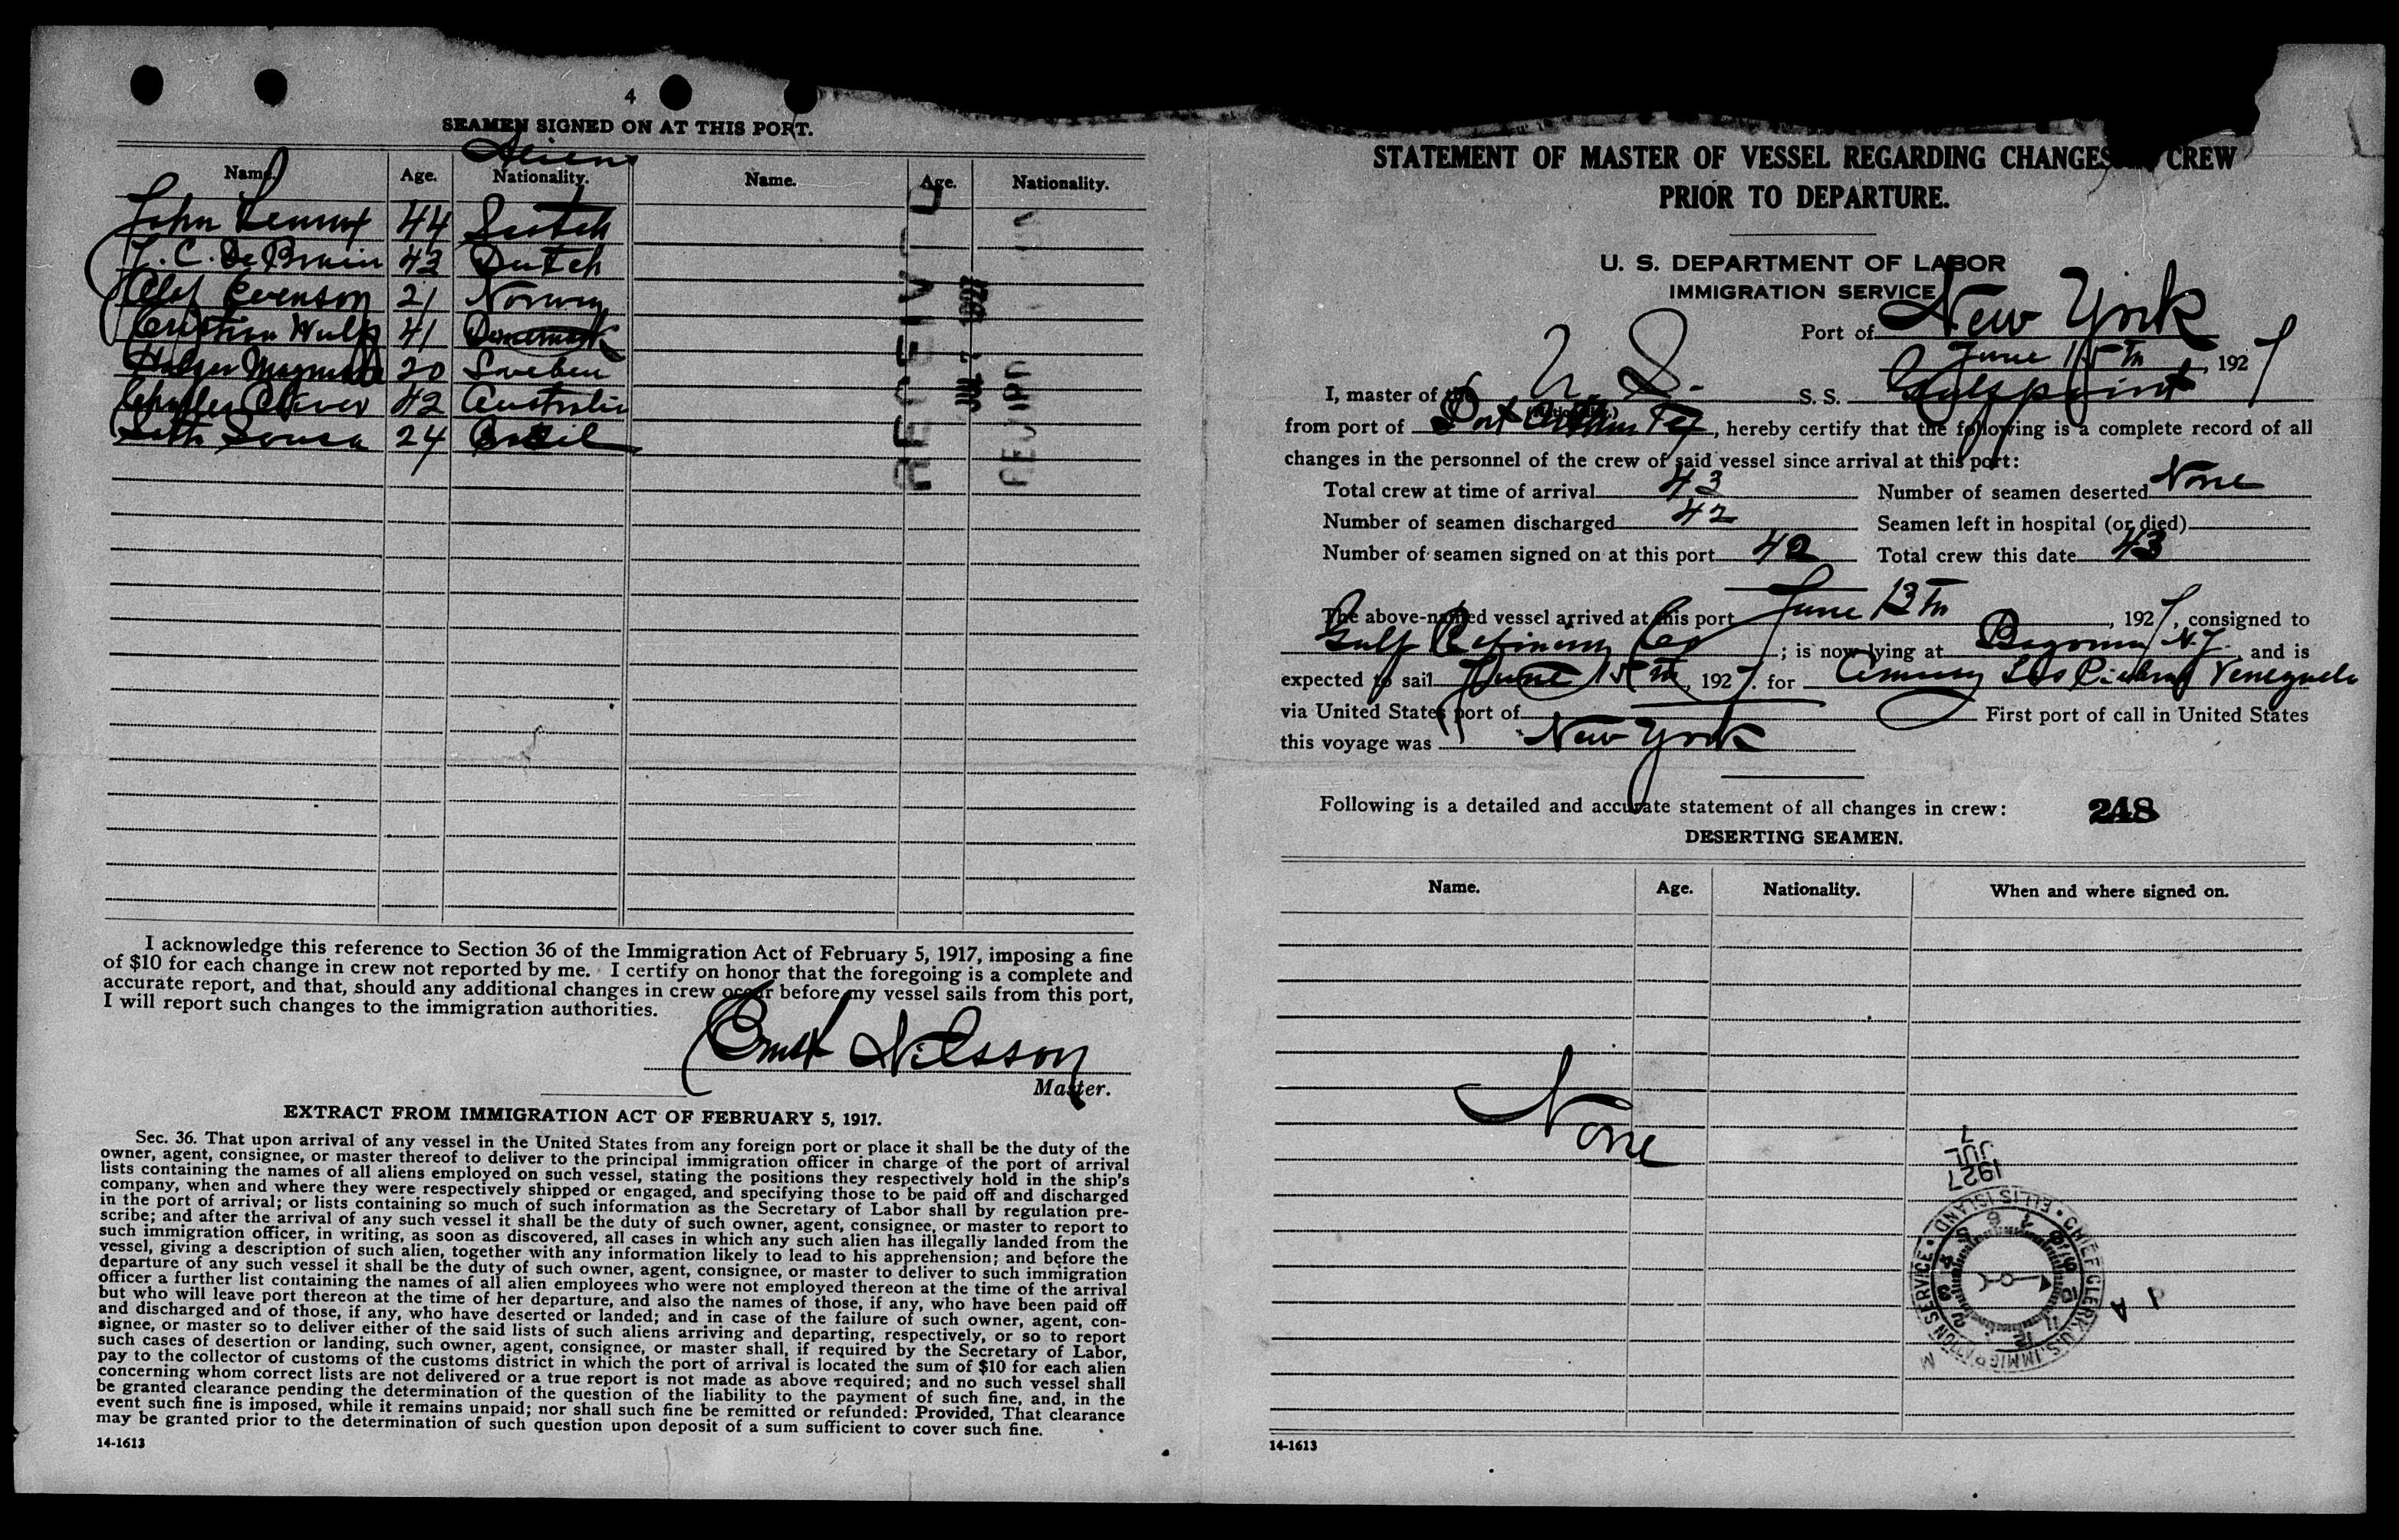 4
SEAMEN SIGNED ON AT THIS PORT.
Aliens
Name. Age. Nationality. Name. Age. Nationality.
John 44 Scotch
C. De Bruin 43 Dutch
Olof Evenson 21 Norway
41 Denmark
20 Sweden
Charles Oliver 42 Australia
Sousa 24 Brazil
RECEIVED
JUL 7 1927
I acknowledge this reference to Section 36 of the Immigration Act of February 5, 1917, imposing a fine
of $10 for each change in crew not reported by me. I certify on honor that the foregoing is a complete and
accurate report, and that, should any additional changes in crew occur before my vessel sails from this port,
I will report such changes to the immigration authorities.
Ernst Nilsson
Master.
EXTRACT FROM IMMIGRATION ACT OF FEBRUARY 5, 1917.
Sec. 36. That upon arrival of any vessel in the United States from any foreign port or place it shall be the duty of the
owner, agent, consignee, or master thereof to deliver to the principal immigration officer in charge of the port of arrival
lists containing the names of all aliens employed on such vessel, stating the positions they respectively hold in the ship's
company, when and where they were respectively shipped or engaged, and specifying those to be paid off and discharged
in the port of arrival; or lists containing so much of such information as the Secretary of Labor shall by regulation pre-
scribe; and after the arrival of any such vessel it shall be the duty of such owner, agent, consignee, or master to report to
such immigration officer, in writing, as soon as discovered, all cases in which any such alien has illegally landed from the
vessel, giving a description of such alien, together with any information likely to lead to his apprehension; and before the
departure of any such vessel it shall be the duty of such owner, agent, consignee, or master to deliver to such immigration
officer a further list containing the names of all alien employees who were not employed thereon at the time of the arrival
but who will leave port thereon at the time of her departure, and also the names of those, if any, who have been paid off
and discharged and of those, if any, who have deserted or landed; and in case of the failure of such owner, agent, con-
signee, or master so to deliver either of the said lists of such aliens arriving and departing, respectively, or so to report
such cases of desertion or landing, such owner, agent, consignee, or master shall, if required by the Secretary of Labor,
pay to the collector of customs of the customs district in which the port of arrival is located the sum of $10 for each alien
concerning whom correct lists are not delivered or a true report is not made as above required; and no such vessel shall
be granted clearance pending the determination of the question of the liability to the payment of such fine, and, in the
event such fine is imposed, while it remains unpaid; nor shall such fine be remitted or refunded: Provided, That clearance
may be granted prior to the determination of such question upon deposit of a sum sufficient to cover such fine.
14-1613
STATEMENT OF MASTER OF VESSEL REGARDING CHANGES CREW
PRIOR TO DEPARTURE.
U. S. DEPARTMENT OF LABOR
IMMIGRATION SERVICE
Port of New York
June 15th, 1927
I, master of the U. S. S. S. Gulfpoint
(Nationality.)
from port of Port Arthur Tex, hereby certify that the following is a complete record of all
changes in the personnel of the crew of said vessel since arrival at this port:
Total crew at time of arrival 43 Number of seamen deserted None
Number of seamen discharged 42 Seamen left in hospital (or died)
Number of seamen signed on at this port 42 Total crew this date 43
The above-named vessel arrived at this port June 13th, 1927, consigned to
Gulf Refining Co; is now lying at Bayonne N.J. and is
expected to sail June 15th, 1927. for Las Piedras Venezuela
via United States port of First port of call in United States
this voyage was New York
Following is a detailed and accurate statement of all changes in crew: 248
DESERTING SEAMEN.
Name. Age. Nationality. When and where signed on.
None
1927
JUL
7
CHIEF CLERK U.S. IMMIGRATION SERVICE • ELLIS ISLAND •
14-1613